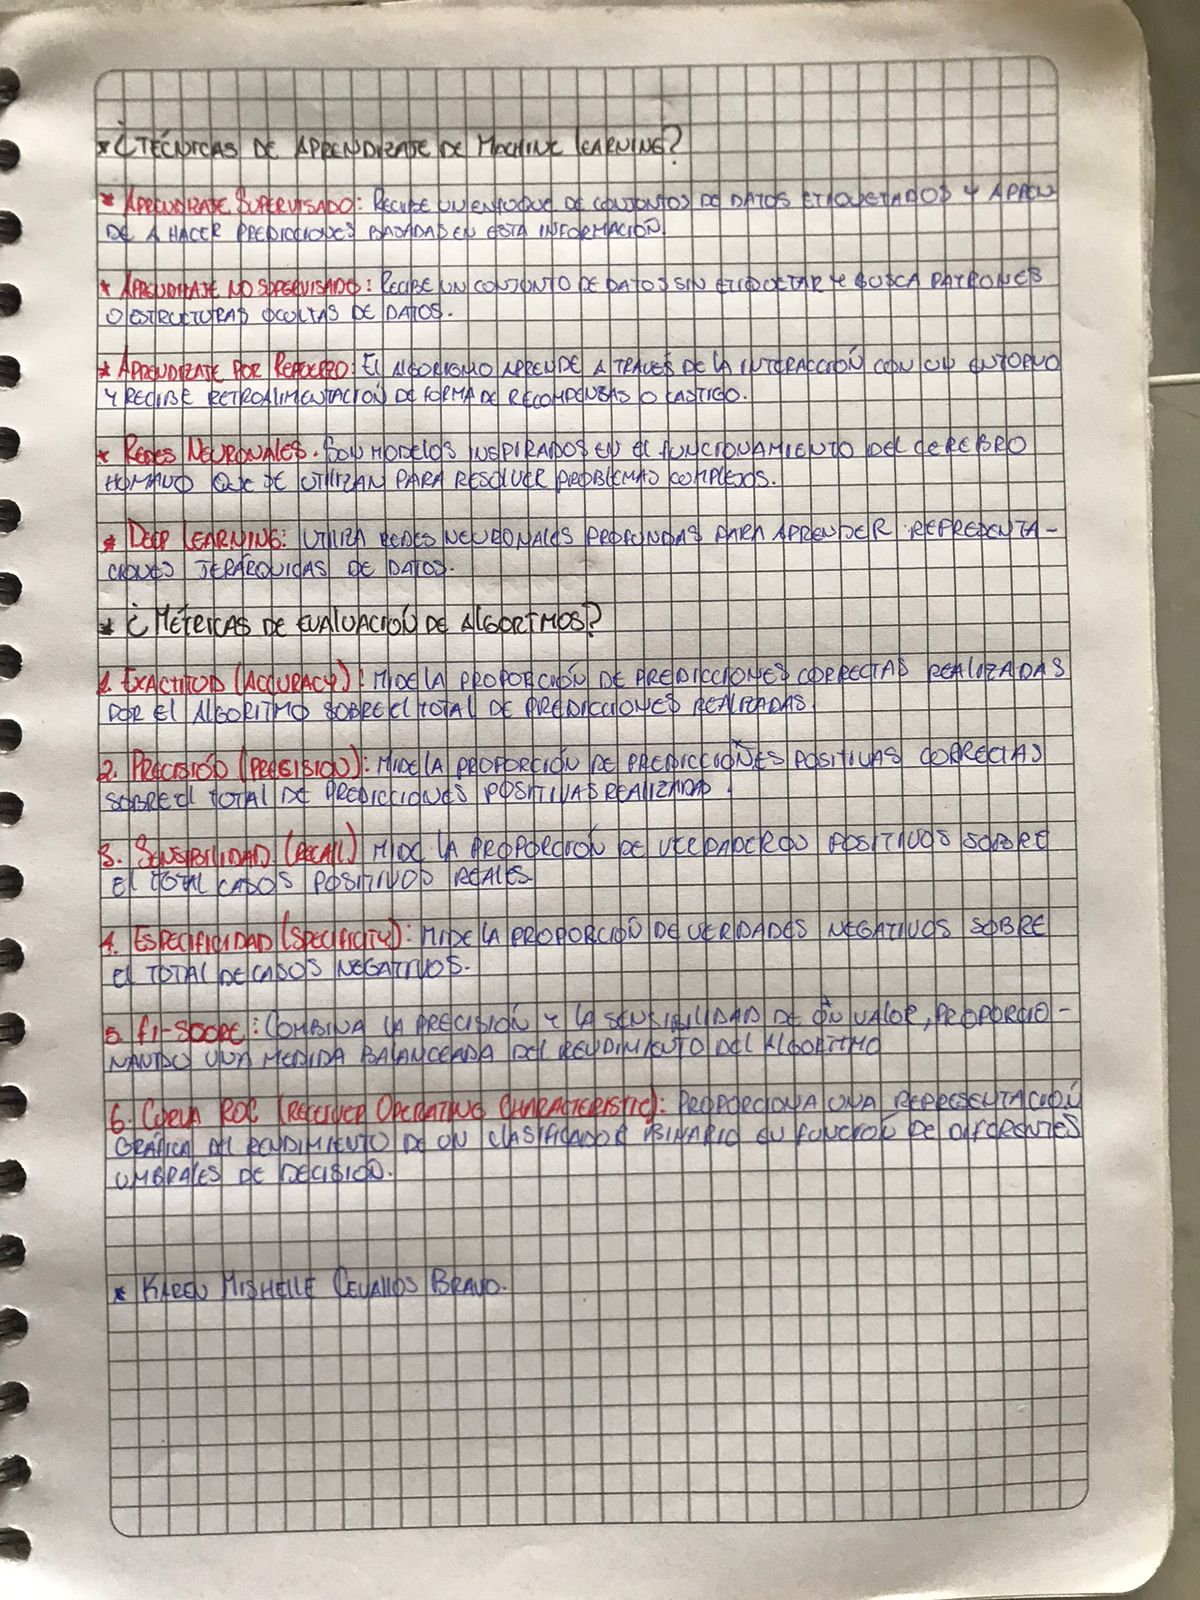 * ¿TÉCNICAS DE APRENDIZAJE DE MACHINE LEARNING?
* APRENDIZAJE SUPERVISADO: RECIBE UN ENFOQUE DE CONJUNTOS DE DATOS ETIQUETADOS Y APREN
DE A HACER PREDICCIONES BASADAS EN ESTA INFORMACIÓN.
* APRENDIZAJE NO SUPERVISADO: RECIBE UN CONJUNTO DE DATOS SIN ETIQUETAR Y BUSCA PATRONES
O ESTRUCTURAS OCULTAS DE DATOS.
* APRENDIZAJE POR REFUERZO: EL ALGORISMO APRENDE A TRAVÉS DE LA INTERACCIÓN CON UN ENTORNO
Y RECIBE RETROALIMENTACIÓN DE FORMA DE RECOMPENSAS O CASTIGO.
* REDES NEURONALES. SON MODELOS INSPIRADOS EN EL FUNCIONAMIENTO DEL CEREBRO
HUMANO QUE SE UTILIZAN PARA RESOLVER PROBLEMAS COMPLEJOS.
* DEEP LEARNING: UTILIZA REDES NEURONALES PROFUNDAS PARA APRENDER REPRESENTA-
CIONES JERÁRQUICAS DE DATOS.
* ¿MÉTRICAS DE EVALUACIÓN DE ALGORITMOS?
1. EXACTITUD (ACCURACY): MIDE LA PROPORCIÓN DE PREDICCIONES CORRECTAS REALIZADAS
POR EL ALGORITMO SOBRE EL TOTAL DE PREDICCIONES REALIZADAS.
2. PRECISIÓN (PRECISION): MIDE LA PROPORCIÓN DE PREDICCIONES POSITIVAS CORRECTAS
SOBRE EL TOTAL DE PREDICCIONES POSITIVAS REALIZADAS.
3. SENSIBILIDAD (RECALL) MIDE LA PROPORCIÓN DE VERDADEROS POSITIVOS SOBRE
EL TOTAL CASOS POSITIVOS REALES
4. ESPECIFICIDAD (SPECIFICITY): MIDE LA PROPORCIÓN DE VERDADES NEGATIVOS SOBRE
EL TOTAL DE CASOS NEGATIVOS.
5. F1-SCORE: COMBINA LA PRECISIÓN Y LA SENSIBILIDAD DE UN VALOR, PROPORCIO-
NANDO UNA MEDIDA BALANCEADA DEL RENDIMIENTO DEL ALGORITMO
6. CURVA ROC (RECEIVER OPERATING CHARACTERISTIC): PROPORCIONA UNA REPRESENTACIÓN
GRÁFICA DEL RENDIMIENTO DE UN CLASIFICADOR BINARIO EN FUNCIÓN DE DIFERENTES
UMBRALES DE DECISIÓN.
* KAREN MISHELLE CEVALLOS BRAVO.